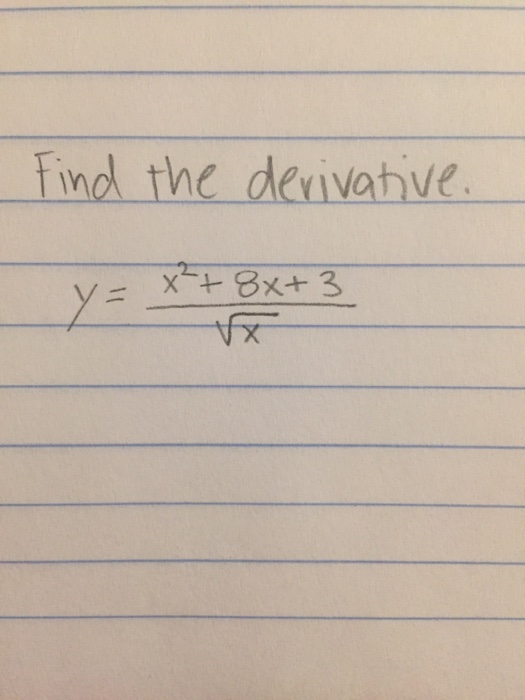 Find the derivative.
y = x²+ 8x+ 3 / √x